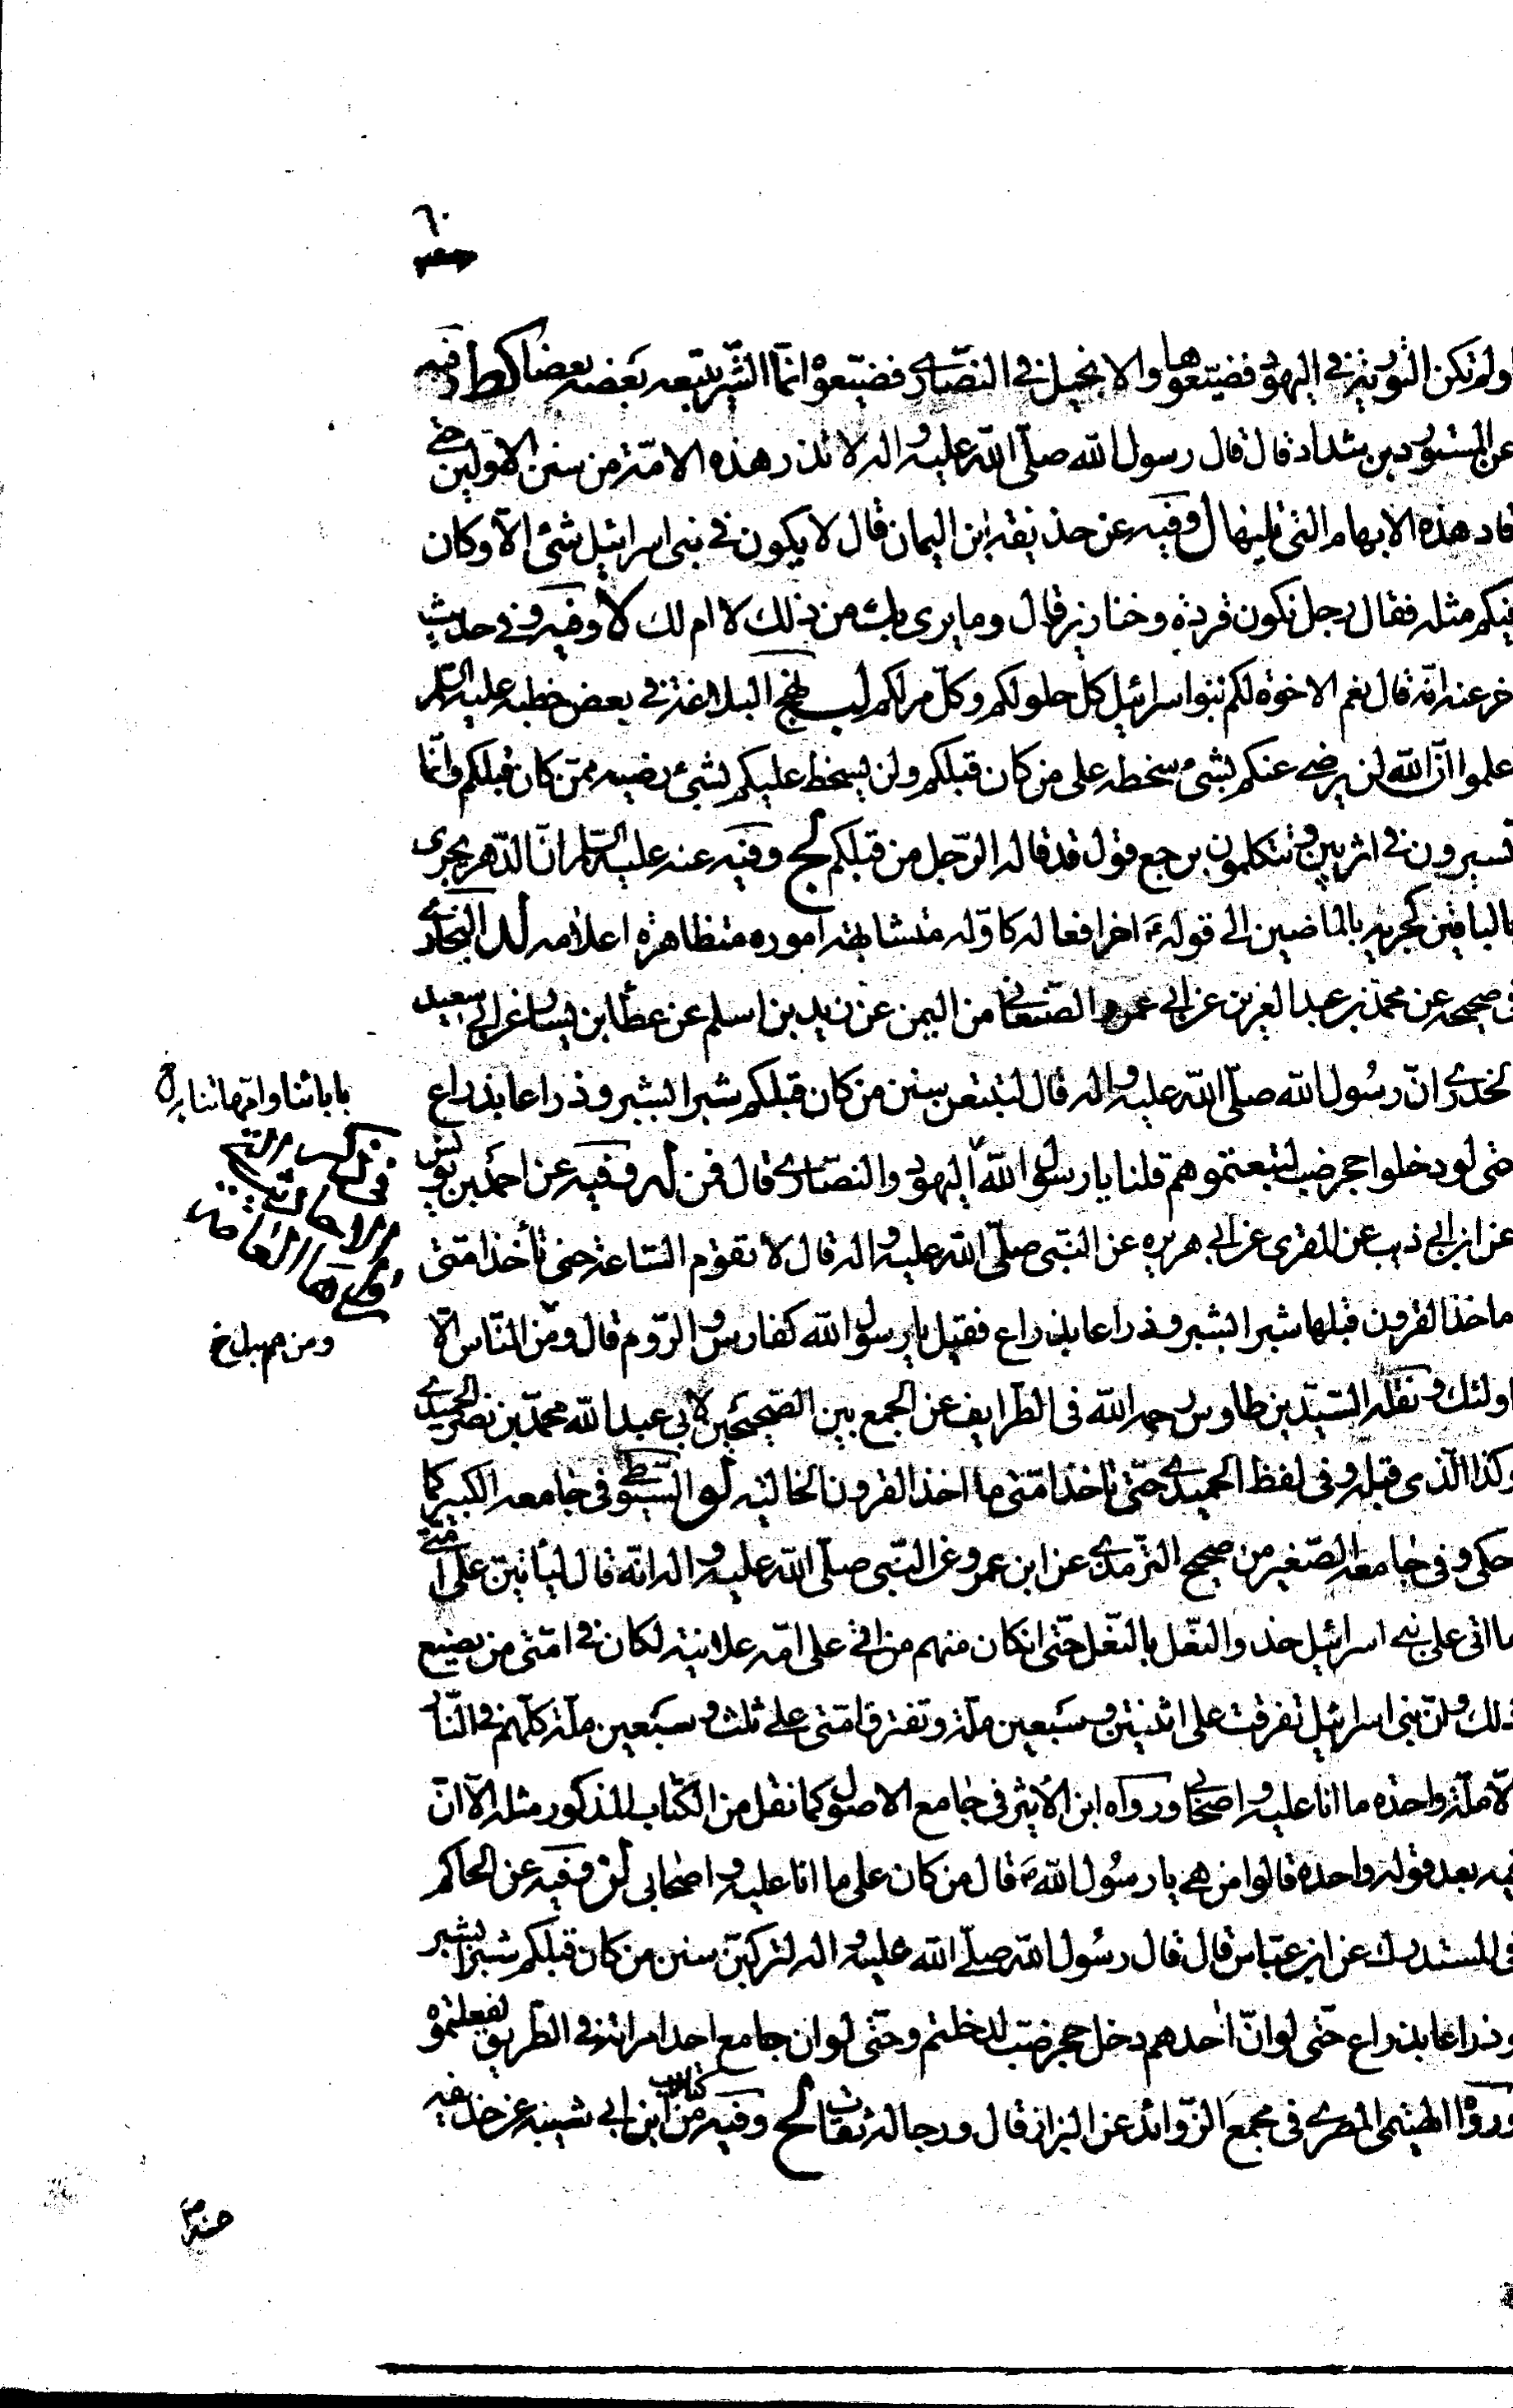 ٦٠
اولم تكن التورية في اليهود فضيّعوها والانجيل في النصّارى فضيّعوه انّما الشّر يتبعه بعضه بعضا كط وفيه
عن المستورد بن شداد قال قال رسول الله صلّى الله عليه واله لا تذر هذه الامّة من سنن الاوّلين
هذه الابهام التي تليها ل وفيه عن حذيفة ابن اليمان قال لا يكون في بني اسرائيل شئ الّا وكان
فيكم مثله فقال رجل تكون قردة وخنازير قال وما يبرى بك من ذلك لا ام لك لا وفيه وفي حديث
اخر عنه انّه قال نعم الاخوة لكم بنوا اسرائيل كل حلو لكم وكلّ مر لهم لب نهج البلاغة في بعض خطبه عليه السّلم
اعلموا انّ الله لن يرضى عنكم بشئ سخطه على من كان قبلكم ولن يسخط عليكم بشئ رضيه ممّن كان قبلكم وانّما
تسيرون في اثر بيّن وتتكلمون برجع قول قد قاله الرّجل من قبلكم لج وفيه عنه عليه السّلم انّ الدّهر يجرى
بالباقين كجريه بالماضين الى قوله ع اخر افعاله كاوّله متشابهة اموره متظاهرة اعلامه لد البخاري
في صحيحه عن محمّد بن عبد العزيز عن ابي عمرو الصّنعاني من اليمن عن زيد بن اسلم عن عطاء بن يسار عن ابي سعيد
الخدري انّ رسُول الله صلّى الله عليه واله قال لتتبّعن سنن من كان قبلكم شبرا بشبر وذراعا بذراع
حتى لو دخلوا حجر ضب لتبعتموهم قلنا يا رسول الله اليهود والنصّارى قال فمن له وفيه عن احمد بن يونس
عن ابن ابي ذيب عن المقرى عن ابي هريرة عن النّبى صلّى الله عليه واله قال لا تقوم السّاعة حتى تأخذ امّتى
ماخذ القرون قبلها شبرا بشبر وذراعا بذراع فقيل يا رسول الله كفارس والرّوم قال ومن النّاس الّا
اولئك ونقله السّيّد بن طاوس رحمه الله فى الطّرايف عن الجمع بين الصّحيحين لابي عبد الله محمّد بن نصر الحميدي
وكذا الّذى قبله وفى لفظ الحميدى حتّى تاخذ امّتى ما اخذ القرون الخالية لو السّيوطي فى جامعه الكبير كما
حكى وفى جامعه الصّغير من صحيح التّرمذي عن ابن عمرو عن النّبى صلّى الله عليه واله انّه قال ليأتينّ على امّتي
ما اتى على بني اسرائيل حذو النّعل بالنّعل حتّى انكان منهم من اتى على امّه علانية لكان في امّتى من يصنع
ذلك وانّ بنى اسرائيل تفرقت على اثنتين وسبعين ملّة وتفترق امّتى على ثلث وسبعين ملّة كلّهم في النّار
الّا ملّة واحدة ما انا عليه واصحابي ورواه ابن الأثير فى جامع الاصول كما نقل من الكتاب المذكور مثله الّا انّ
فيه بعد قوله واحدة قالوا من هي يا رسُول الله ص قال من كان على ما انا عليه واصحابى لز وفيه عن الحاكم
فى المستدرك عن ابن عبّاس قال قال رسُول الله صلّى الله عليه واله لتركبنّ سنن من كان قبلكم شبرا بشبر
وذراعا بذراع حتّى لو انّ احدهم دخل حجر ضبّ لدخلتم وحتّى لو ان جامع احد امراته في الطّريق لفعلتموه
ورواه الهيثمى المصرى فى مجمع الزّوائد عن البزاز قال ورجاله ثقات لح وفيه من كتاب ابن ابي شيبة عن حذيفة
بابائنا وامّهاتنا
ومن هم بدل خ